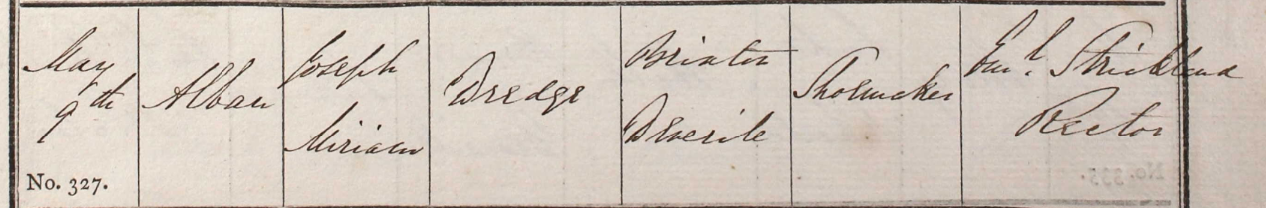 May
9th
No. 327.
Alban
Joseph
Miriam
Dredge
Brixton
Deverile
Shoemaker
Eml. Strickland
Rector